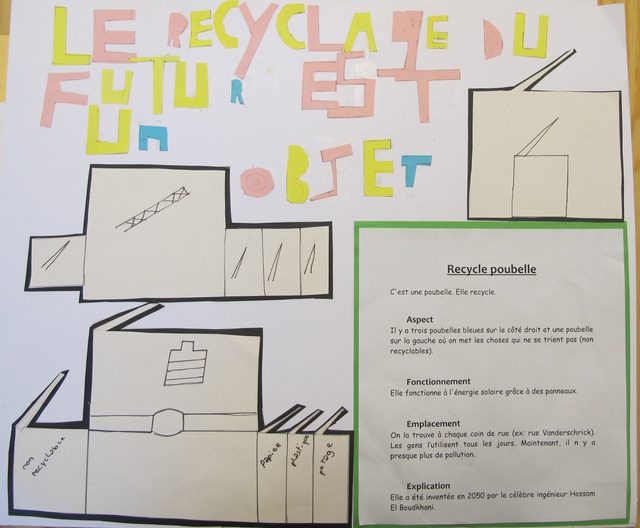 LE RECYCLAGE DU
FUTUR EST
UN OBJET
Recycle poubelle
C'est une poubelle. Elle recycle.
Aspect
Il y a trois poubelles bleues sur le côté droit et une poubelle
sur la gauche où on met les choses qui ne se trient pas (non
recyclables).
Fonctionnement
Elle fonctionne à l'énergie solaire grâce à des panneaux.
Emplacement
On la trouve à chaque coin de rue (ex: rue Vanderschrick).
Les gens l'utilisent tous les jours. Maintenant, il n y a
presque plus de pollution.
Explication
Elle a été inventée en 2050 par le célèbre ingénieur Hossam
El Boudkhani.
non
recyclable
papier
plastique